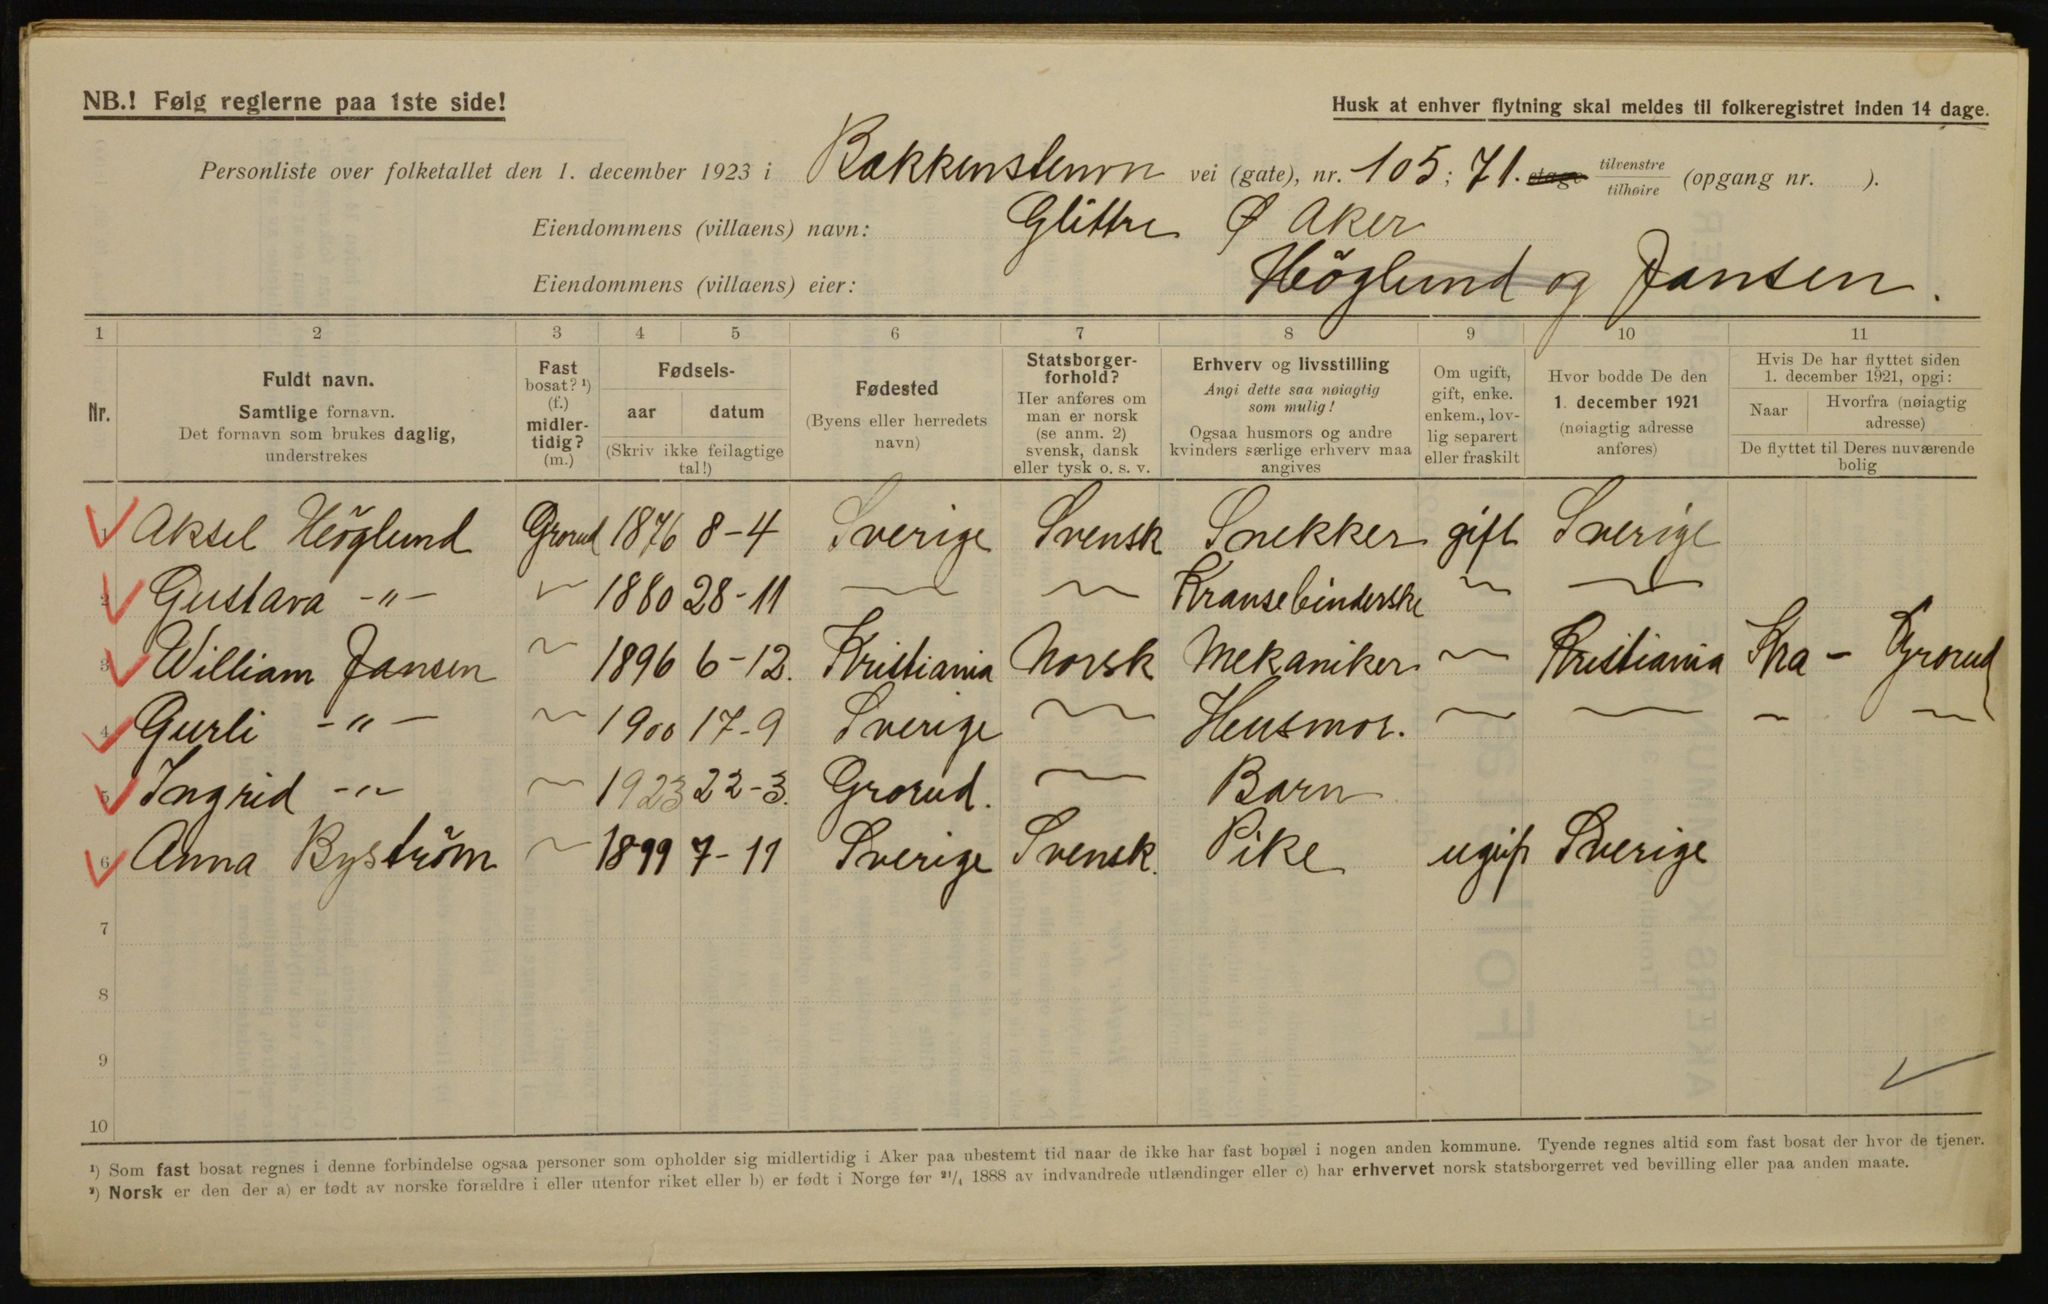 NB.! Følg reglerne paa 1ste side!
Husk at enhver flytning skal meldes til folkeregistret inden 14 dage.
Personliste over folketallet den 1. december 1923 i vei (gate), nr. 105; 71. etage tilvenstre tilhøire (opgang nr. ).
Eiendommens (villaens) navn: Glittre Ø Aker
Eiendommens (villaens) eier: Höglund og Jansen.
1 2 3 4 5 6 7 8 9 10 11
Nr.
Fuldt navn.
Samtlige fornavn.
Det fornavn som brukes daglig,
understrekes
Fast
bosat? ¹)
(f.)
midler-
tidig?
(m.)
Fødsels-
aar datum
(Skriv ikke feilagtige
tal!)
Fødested
(Byens eller herredets
navn)
Statsborger-
forhold?
Her anføres om
man er norsk
(se anm. 2)
svensk, dansk
eller tysk o. s. v.
Erhverv og livsstilling
Angi dette saa nøiagtig
som mulig!
Ogsaa husmors og andre
kvinders særlige erhverv maa
angives
Om ugift,
gift, enke.
enkem., lov-
lig separert
eller fraskilt
Hvor bodde De den
1. december 1921
(nøiagtig adresse
anføres)
Hvis De har flyttet siden
1. december 1921, opgi:
Naar
Hvorfra (nøiagtig
adresse)
De flyttet til Deres nuværende
bolig
1 Aksel Höglund Grorud 1876 8-4 Sverige Svensk Snekker gift Sverige
2 Gustava -"- ~ 1880 28-11 ~ ~ Kransebinderske ~ ~
3 William Jansen ~ 1896 6-12. Kristiania Norsk Mekaniker ~ Kristiania Kra - Grorud
4 Gurli -"- ~ 1900 17-9 Sverige ~ Husmor. ~ ~ ~ ~
5 Ingrid -"- ~ 1923 22-3. Grorud. ~ Barn
6 Anna Byström ~ 1899 7-11 Sverige Svensk. Pike ugift Sverige
7
8
9
10
¹) Som fast bosat regnes i denne forbindelse ogsaa personer som opholder sig midlertidig i Aker paa ubestemt tid naar de ikke har fast bopæl i nogen anden kommune. Tyende regnes altid som fast bosat der hvor de tjener.
²) Norsk er den der a) er født av norske forældre i eller utenfor riket eller b) er født i Norge før ²¹/₄ 1888 av indvandrede utlændinger eller c) har erhvervet norsk statsborgerret ved bevilling eller paa anden maate.